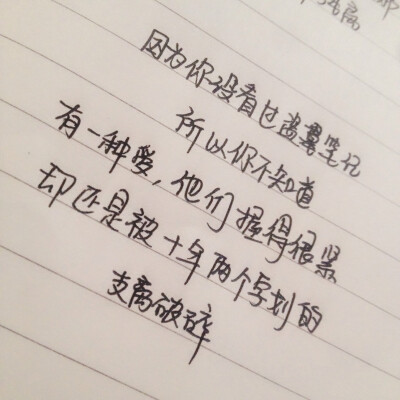 因为你没看过盗墓笔记
所以你不知道
有一种爱,他们握得很紧
却还是被十年两个字划的
支离破碎